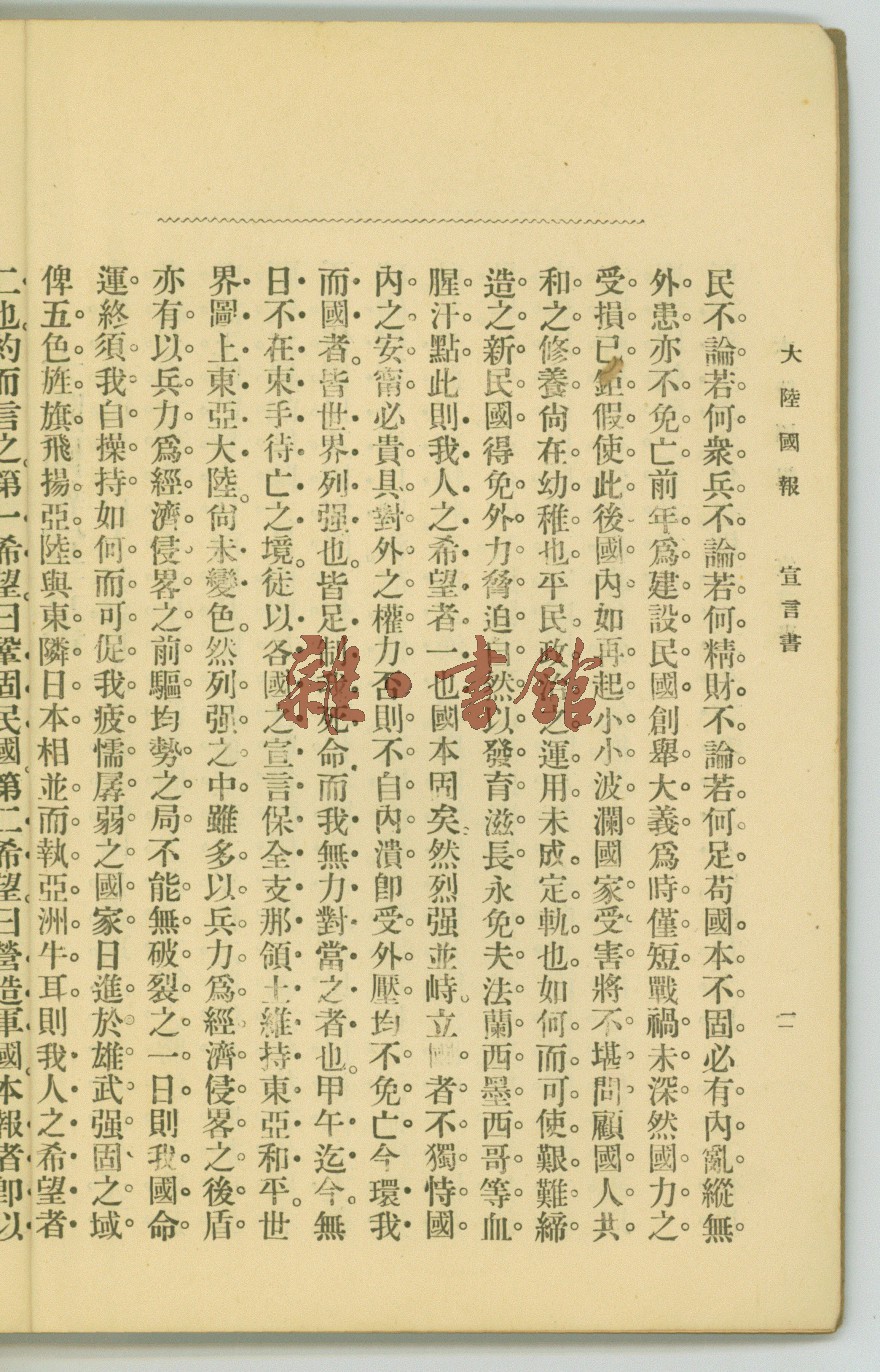 大陸國報 宣言書 二
民不論若何衆兵不論若何精財不論若何足苟國本不固必有內亂縱無
外患亦不免亡前年爲建設民國創舉大義爲時僅短戰禍未深然國力之
受損已鉅假使此後國內如再起小小波瀾國家受害將不堪問顧國人共
和之修養尙在幼稚也平民政治之運用未成定軌也如何而可使艱難締
造之新民國得免外力脅迫自然以發育滋長永免夫法蘭西墨西哥等血
腥汗點此則我人之希望者一也國本固矣然烈强並峙立國者不獨恃國
內之安甯必貴具對外之權力否則不自內潰卽受外壓均不免亡今環我
而國者皆世界列强也皆足制我死命而我無力對當之者也甲午迄今無
日不在束手待亡之境徒以各國之宣言保全支那領土維持東亞和平世
界圖上東亞大陸尙未變色然列强之中雖多以兵力爲經濟侵畧之後盾
亦有以兵力爲經濟侵畧之前驅均勢之局不能無破裂之一日則我國命
運終須我自操持如何而可促我疲懦孱弱之國家日進於雄武强固之域
俾五色旌旗飛揚亞陸與東隣日本相並而執亞洲牛耳則我人之希望者
二也約而言之第一希望曰鞏固民國第二希望曰營造軍國本報者卽以
雜·書館